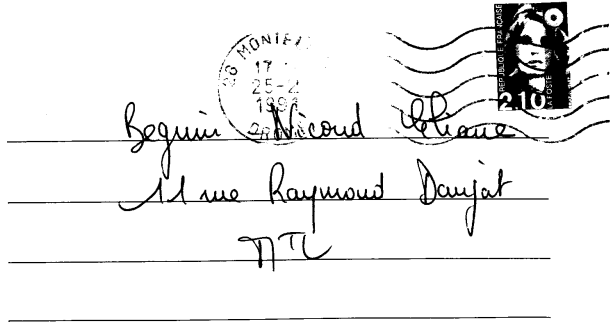 26 MONTE
17
25-2
199
DRO
REPUBLIQUE FRANÇAISE
2,10
LA POSTE
Beguin Nicoud Eliane
11 rue Raymond Daujat
MTL